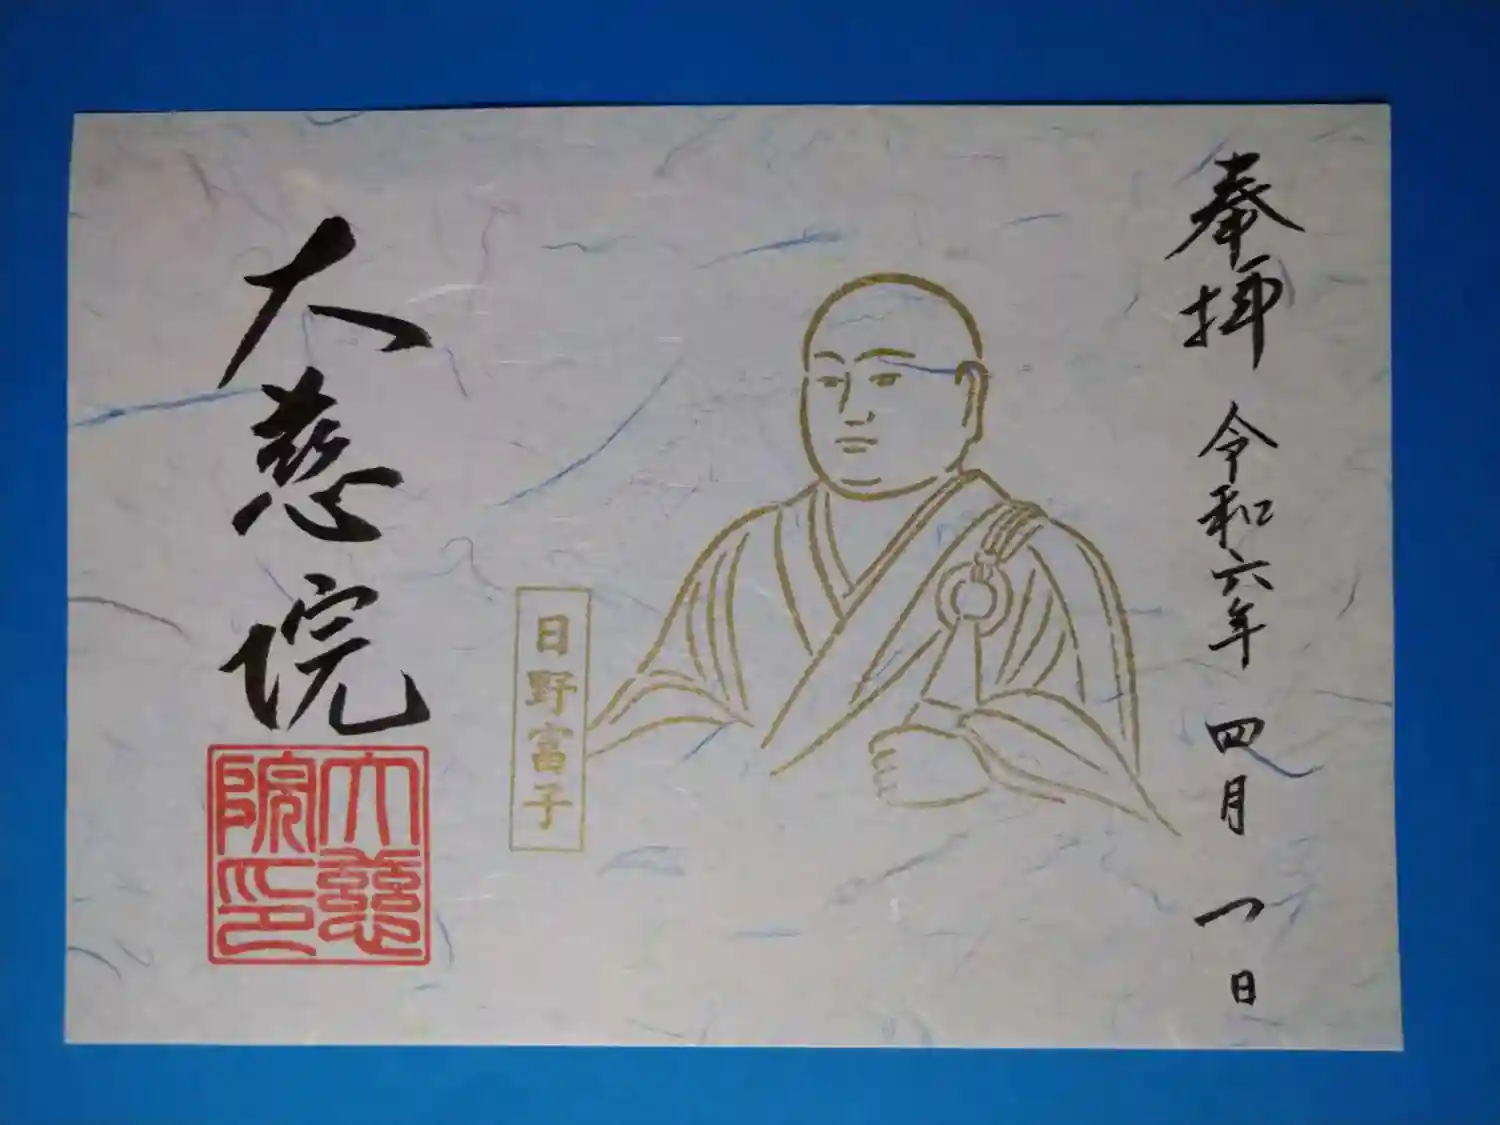 奉拝
令和六年
四月
一日
日野富子
大慈院
大慈
院印